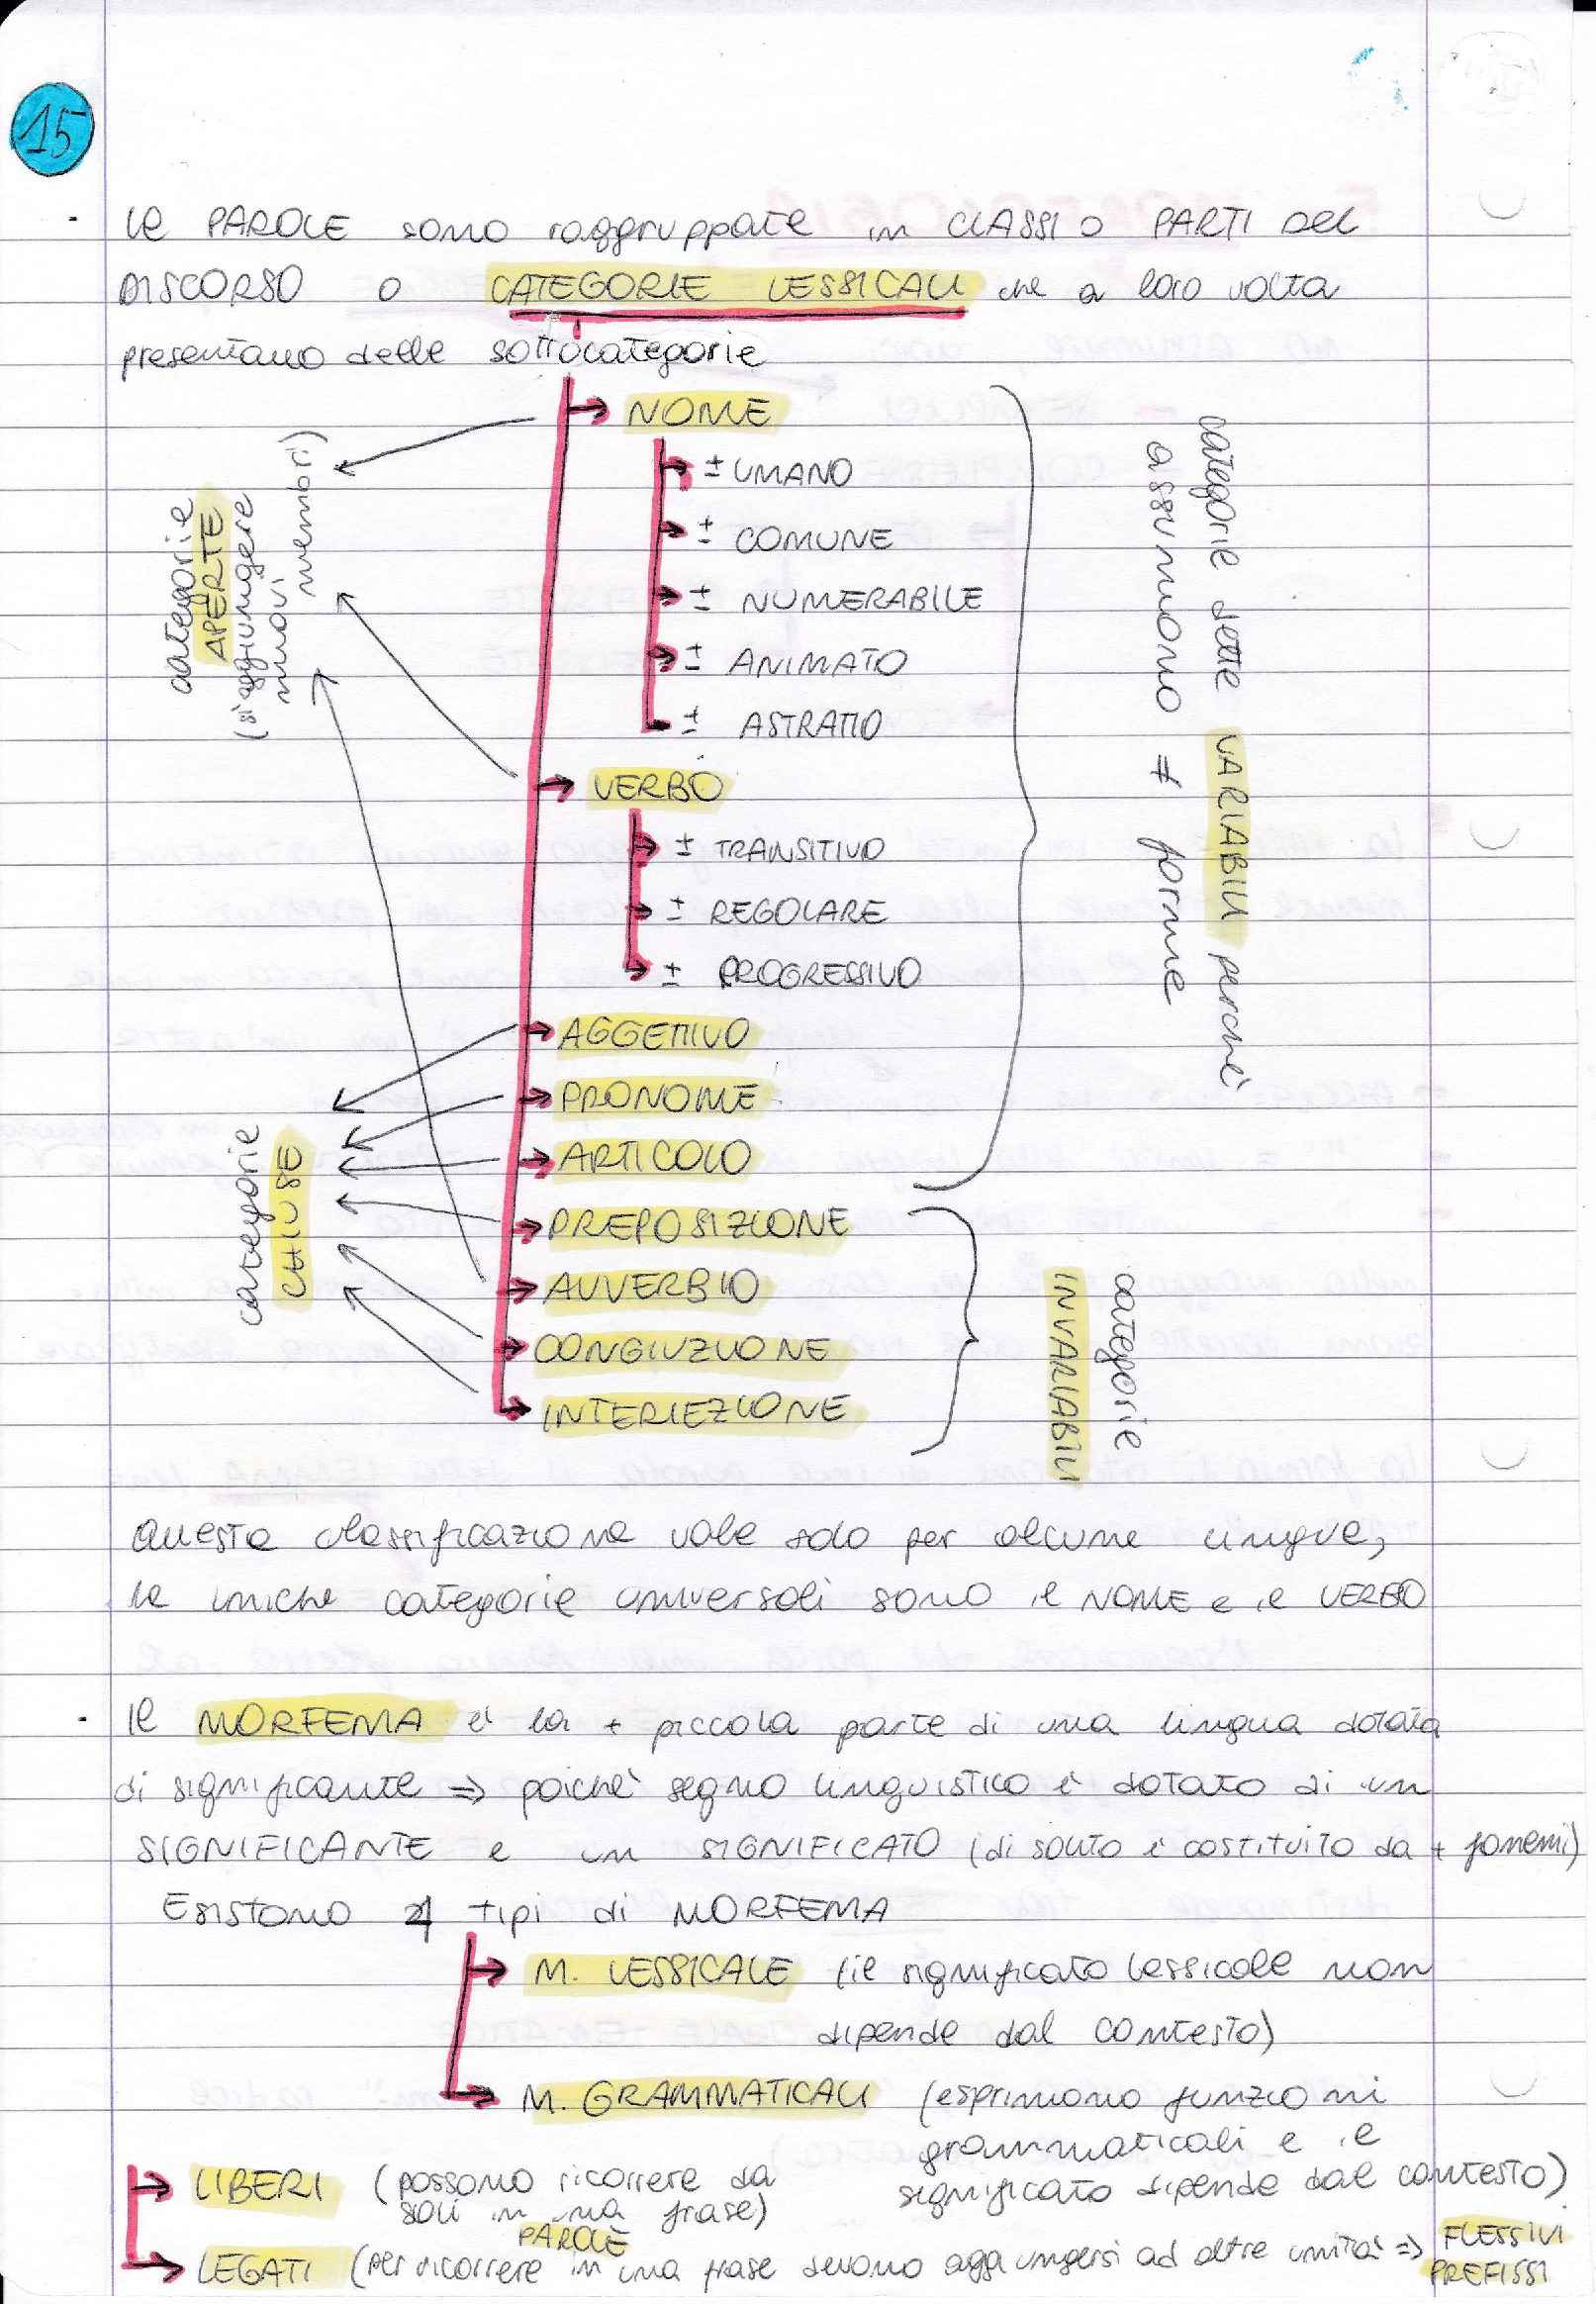 15
- Le PAROLE sono raggruppate in CLASSI O PARTI DEL
DISCORSO O CATEGORIE LESSICALI che a loro volta
presentano delle sottocategorie
→ NOME
→ ± UMANO
→ ± COMUNE
→ ± NUMERABILE
→ ± ANIMATO
→ ± ASTRATTO
→ VERBO
→ ± TRANSITIVO
→ ± REGOLARE
→ ± PROGRESSIVO
→ AGGETTIVO
→ PRONOME
→ ARTICOLO
→ PREPOSIZIONE
→ AVVERBIO
→ CONGIUZIONE
→ INTERIEZIONE
categorie
APERTE
(si aggiungere
nuovi
membri)
categorie
CHIUSE
categorie dette VARIABILI perché
assumono ≠ forme
categorie
INVARIABILI
Questa classificazione vale solo per alcune lingue,
le uniche categorie universali sono il NOME e il VERBO
- Il MORFEMA è la + piccola parte di una lingua dotata
di significante ⇒ poiché segno linguistico è dotato di un
SIGNIFICANTE e un SIGNIFICATO (di solito è costituito da + fonemi)
Esistono 4 tipi di MORFEMA
→ M. LESSICALE (il significato lessicale non
dipende dal contesto)
→ M. GRAMMATICALI (esprimono funzioni
grammaticali e il
significato dipende dal contesto)
→ LIBERI (possono ricorrere da
soli in una frase)
PAROLE
→ LEGATI (per ricorrere in una frase devono aggiungersi ad altre unità ⇒ FLESSIVI
PREFISSI